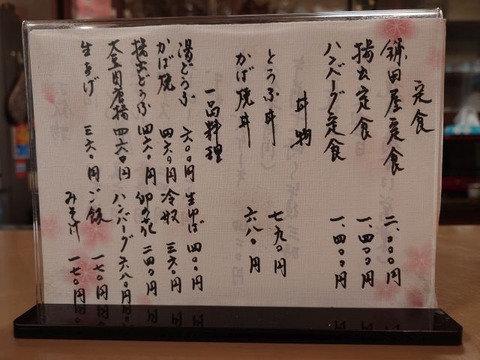 定食
鎌田屋定食 二、〇〇〇円
揚出定食 一、四〇〇円
ハンバーグ定食 一、四〇〇円
丼物
とうふ丼 七九〇円
かば焼丼 六八〇円
一品料理
湯どうふ 六〇〇円 生ゆば 四〇〇円
かば焼 四六〇円 冷奴 三六〇円
揚出どうふ 四六〇円 卯の花 二四〇円
四六〇円 ハンバーグ 六八〇円
生あげ 三六〇円 ご飯 一七〇円
みそ汁 一七〇円